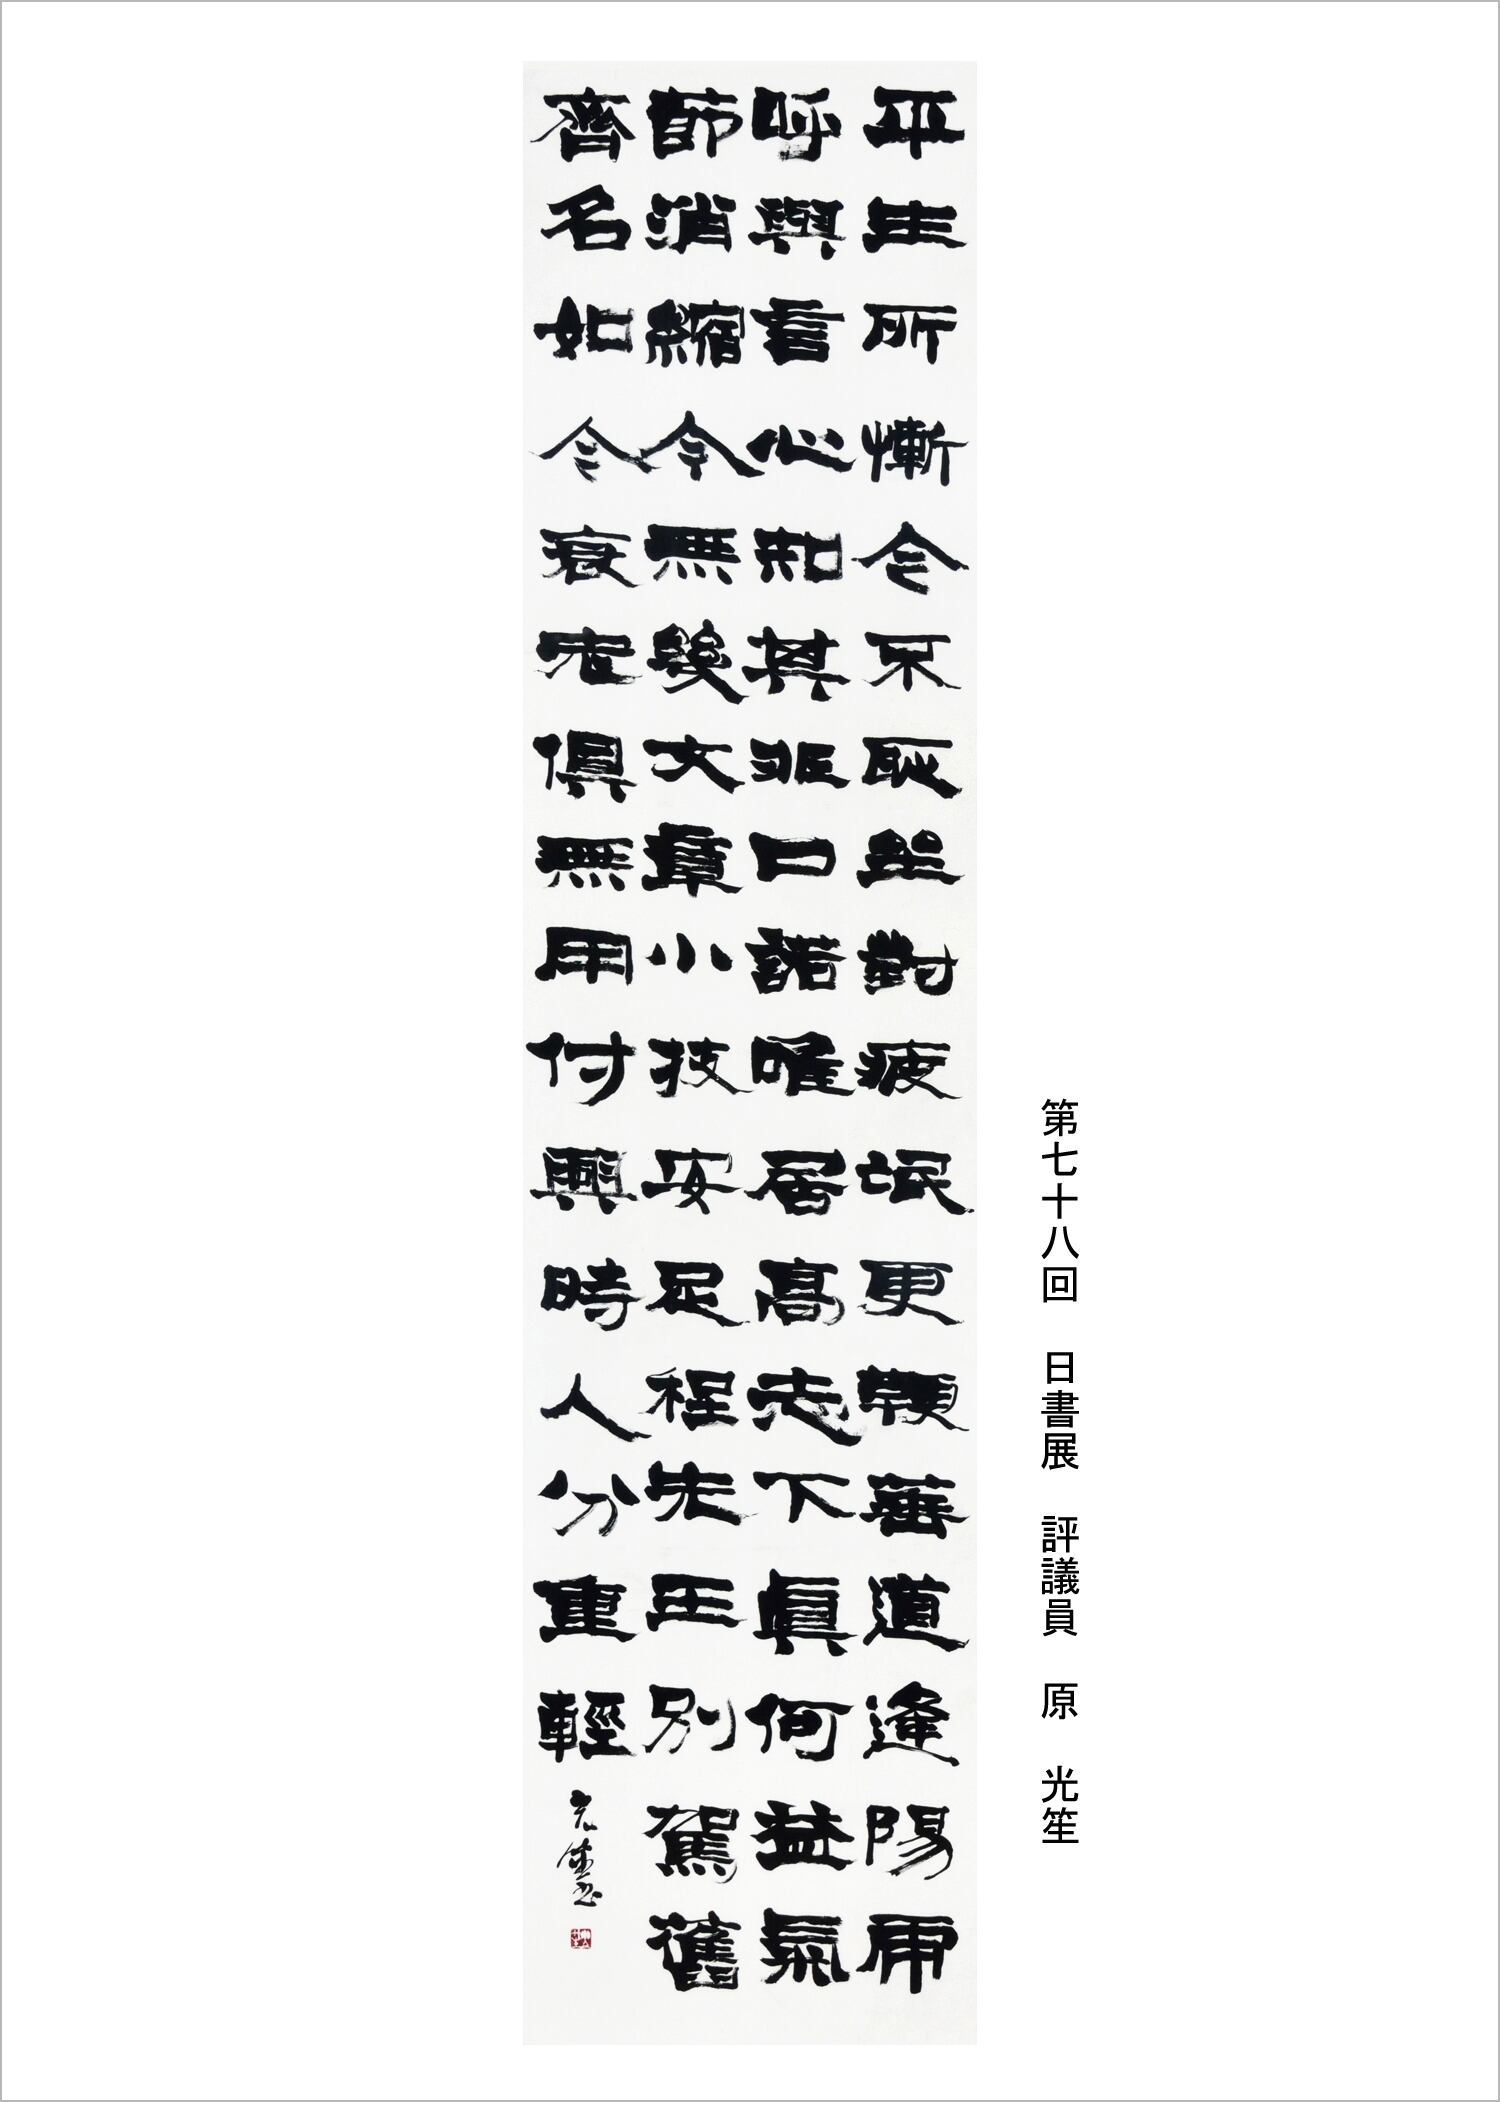 第七十八回　日書展　評議員　原　光笙
平生所慚今不恥坐對疲氓更鞭箠道逢陽虎
呼與言心知其非口諾唯居高志下眞何益氣
節消縮今無幾文章小技安足程先生別駕舊
齊名如今衰老俱無用付與時人分重輕
光笙書